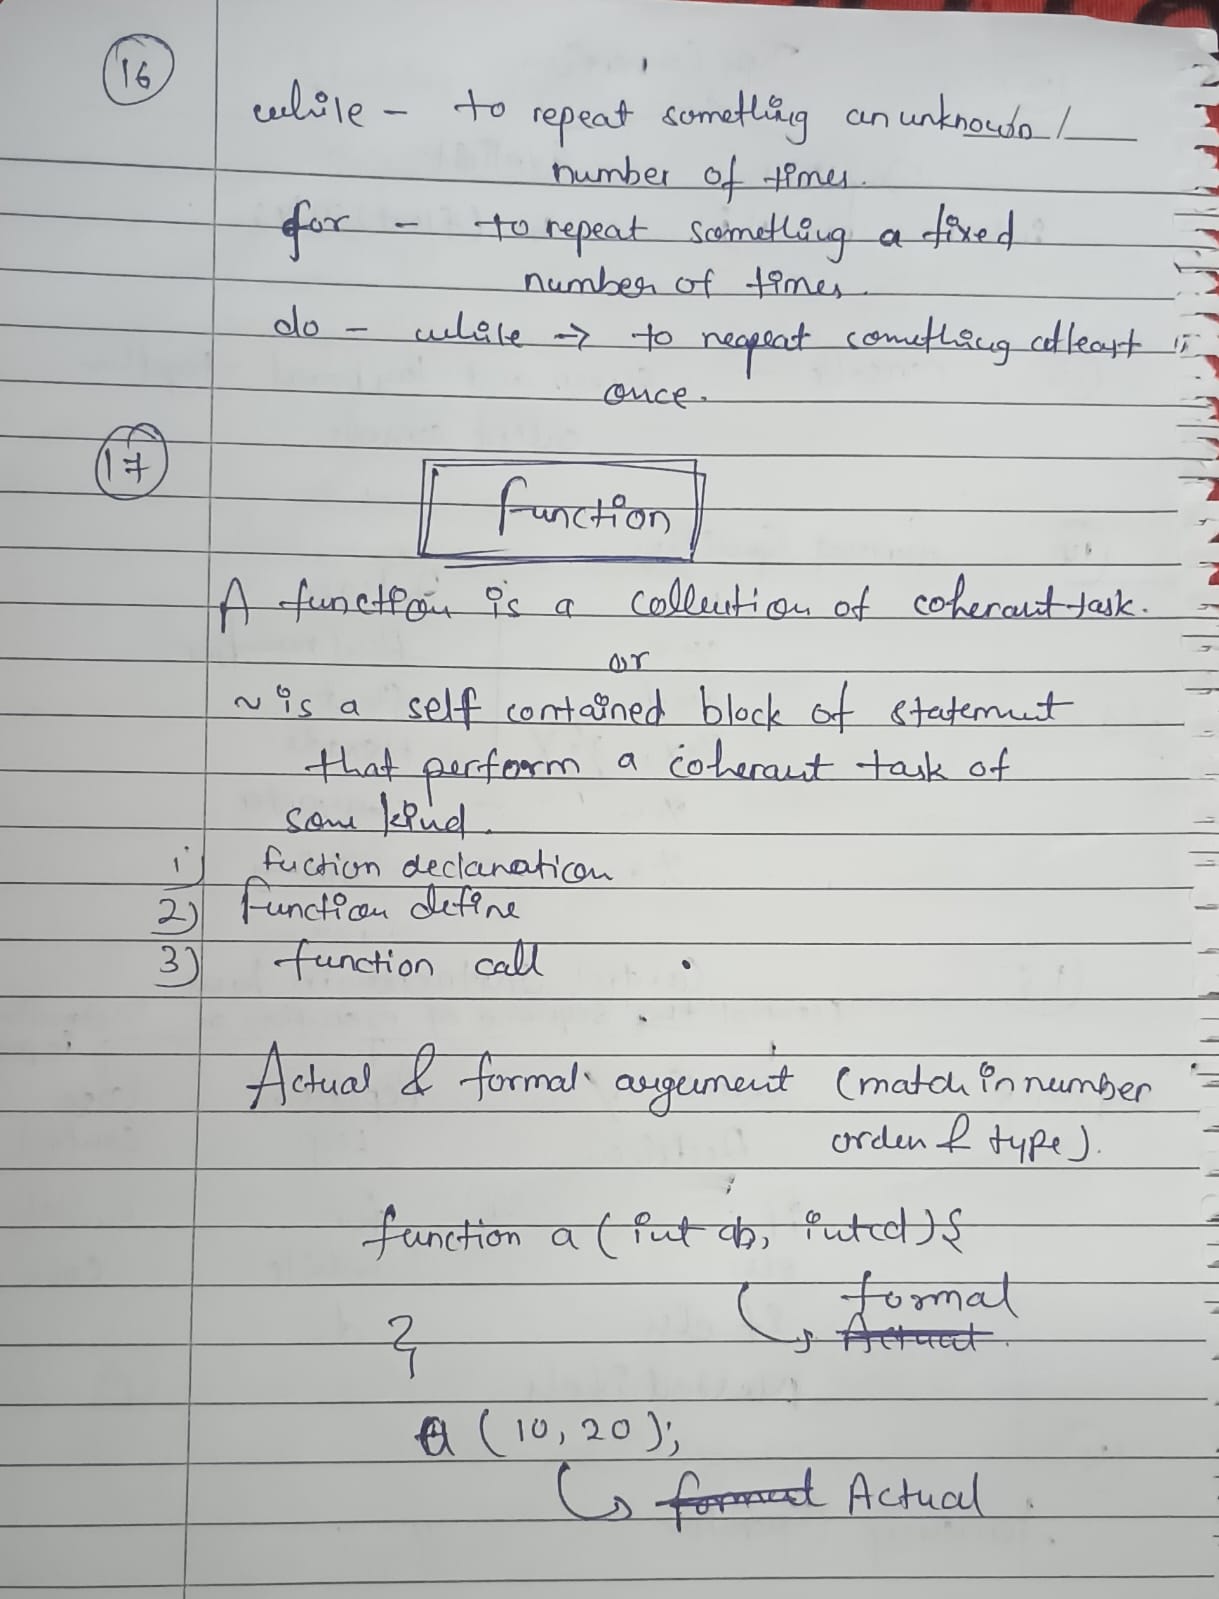 16
while - to repeat something an unknown /
number of times.
for - to repeat something a fixed
number of times.
do - while → to reapeat something atleast
once.
17
function
A function is a collection of coherant task.
or
~ is a self contained block of statement
that perform a coherant task of
some kind.
1) fuction declaration
2) function define
3) function call
Actual & formal arguement (match in number
order & type).
function a (int ab, int cd) {
formal
Actual.
}
a (10, 20);
formal Actual